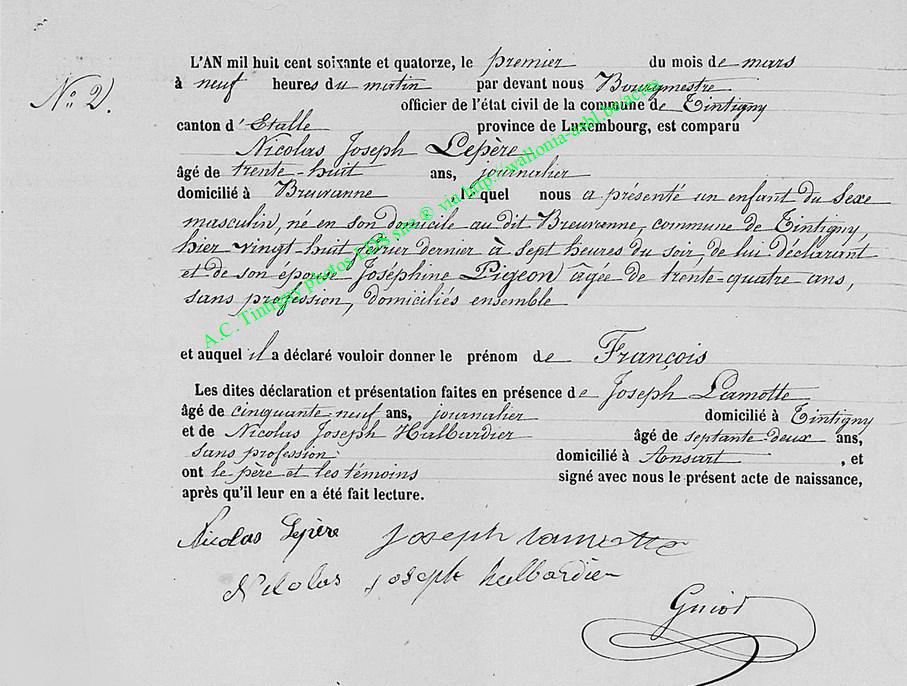 L'AN mil huit cent soixante et quatorze, le premier du mois de mars
N° 2.
à neuf heures du matin par devant nous Bourgmestre
officier de l'état civil de la commune de Tintigny
canton d'Etalle province de Luxembourg, est comparu
Nicolas Joseph Lepère
âgé de trente-huit ans, journalier
domicilié à Breuvanne lequel nous a présenté un enfant du sexe
masculin, né en son domicile au dit Breuvanne, commune de Tintigny,
hier vingt-huit février dernier à sept heures du soir, de lui déclarant
et de son épouse Joséphine Pigeon agée de trente-quatre ans,
sans profession, domiciliés ensemble
et auquel il a déclaré vouloir donner le prénom de François
Les dites déclaration et présentation faites en présence de Joseph Lamotte
âgé de cinquante-neuf ans, journalier domicilié à Tintigny
et de Nicolas Joseph Halbardier âgé de septante-deux ans,
sans profession domicilié à Ansart, et
ont le père et les témoins signé avec nous le présent acte de naissance,
après qu'il leur en a été fait lecture.
Nicolas Lepère Joseph lamotte
Nicolas joseph halbardier
Guiot
A.C. Tintigny photos LDS site ® via http://wallonia-asbl.be/actes